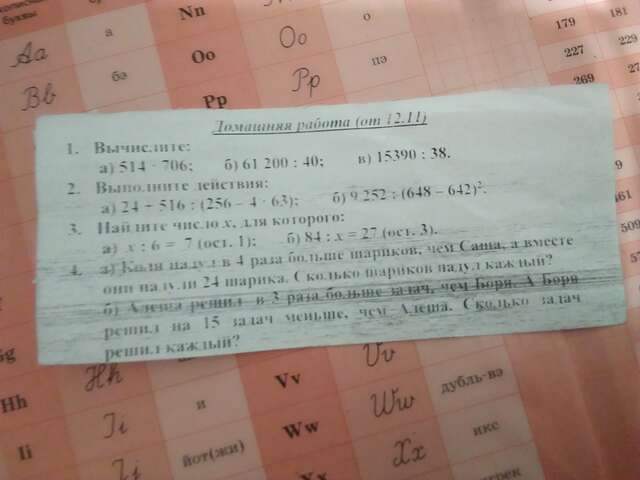 буквы
а
Nn
о
Aa
бэ
Oo
Oo
пэ
Bb
Pp
Pp
179 181
227 229
269
Домашняя работа (от 12.11)
1. Вычислите:
а) 514 · 706; б) 61 200 : 40; в) 15390 : 38.
2. Выполните действия:
а) 24 + 516 : (256 – 4 · 63); б) 9 252 : (648 – 642)².
3. Найдите число x, для которого:
а) x : 6 = 7 (ост. 1); б) 84 : x = 27 (ост. 3).
4. а) Коля надул в 4 раза больше шариков, чем Саша, а вместе
они надули 24 шарика. Сколько шариков надул каждый?
б) Алеша решил в 3 раза больше задач, чем Боря. А Боря
решил на 15 задач меньше, чем Алеша. Сколько задач
решил каждый?
461
509
Gg
Hh
Hh
Vv
Vv
дубль-вэ
Ii
Ii
и
Ww
Ww
икс
йот(жи)
Xx
Xx